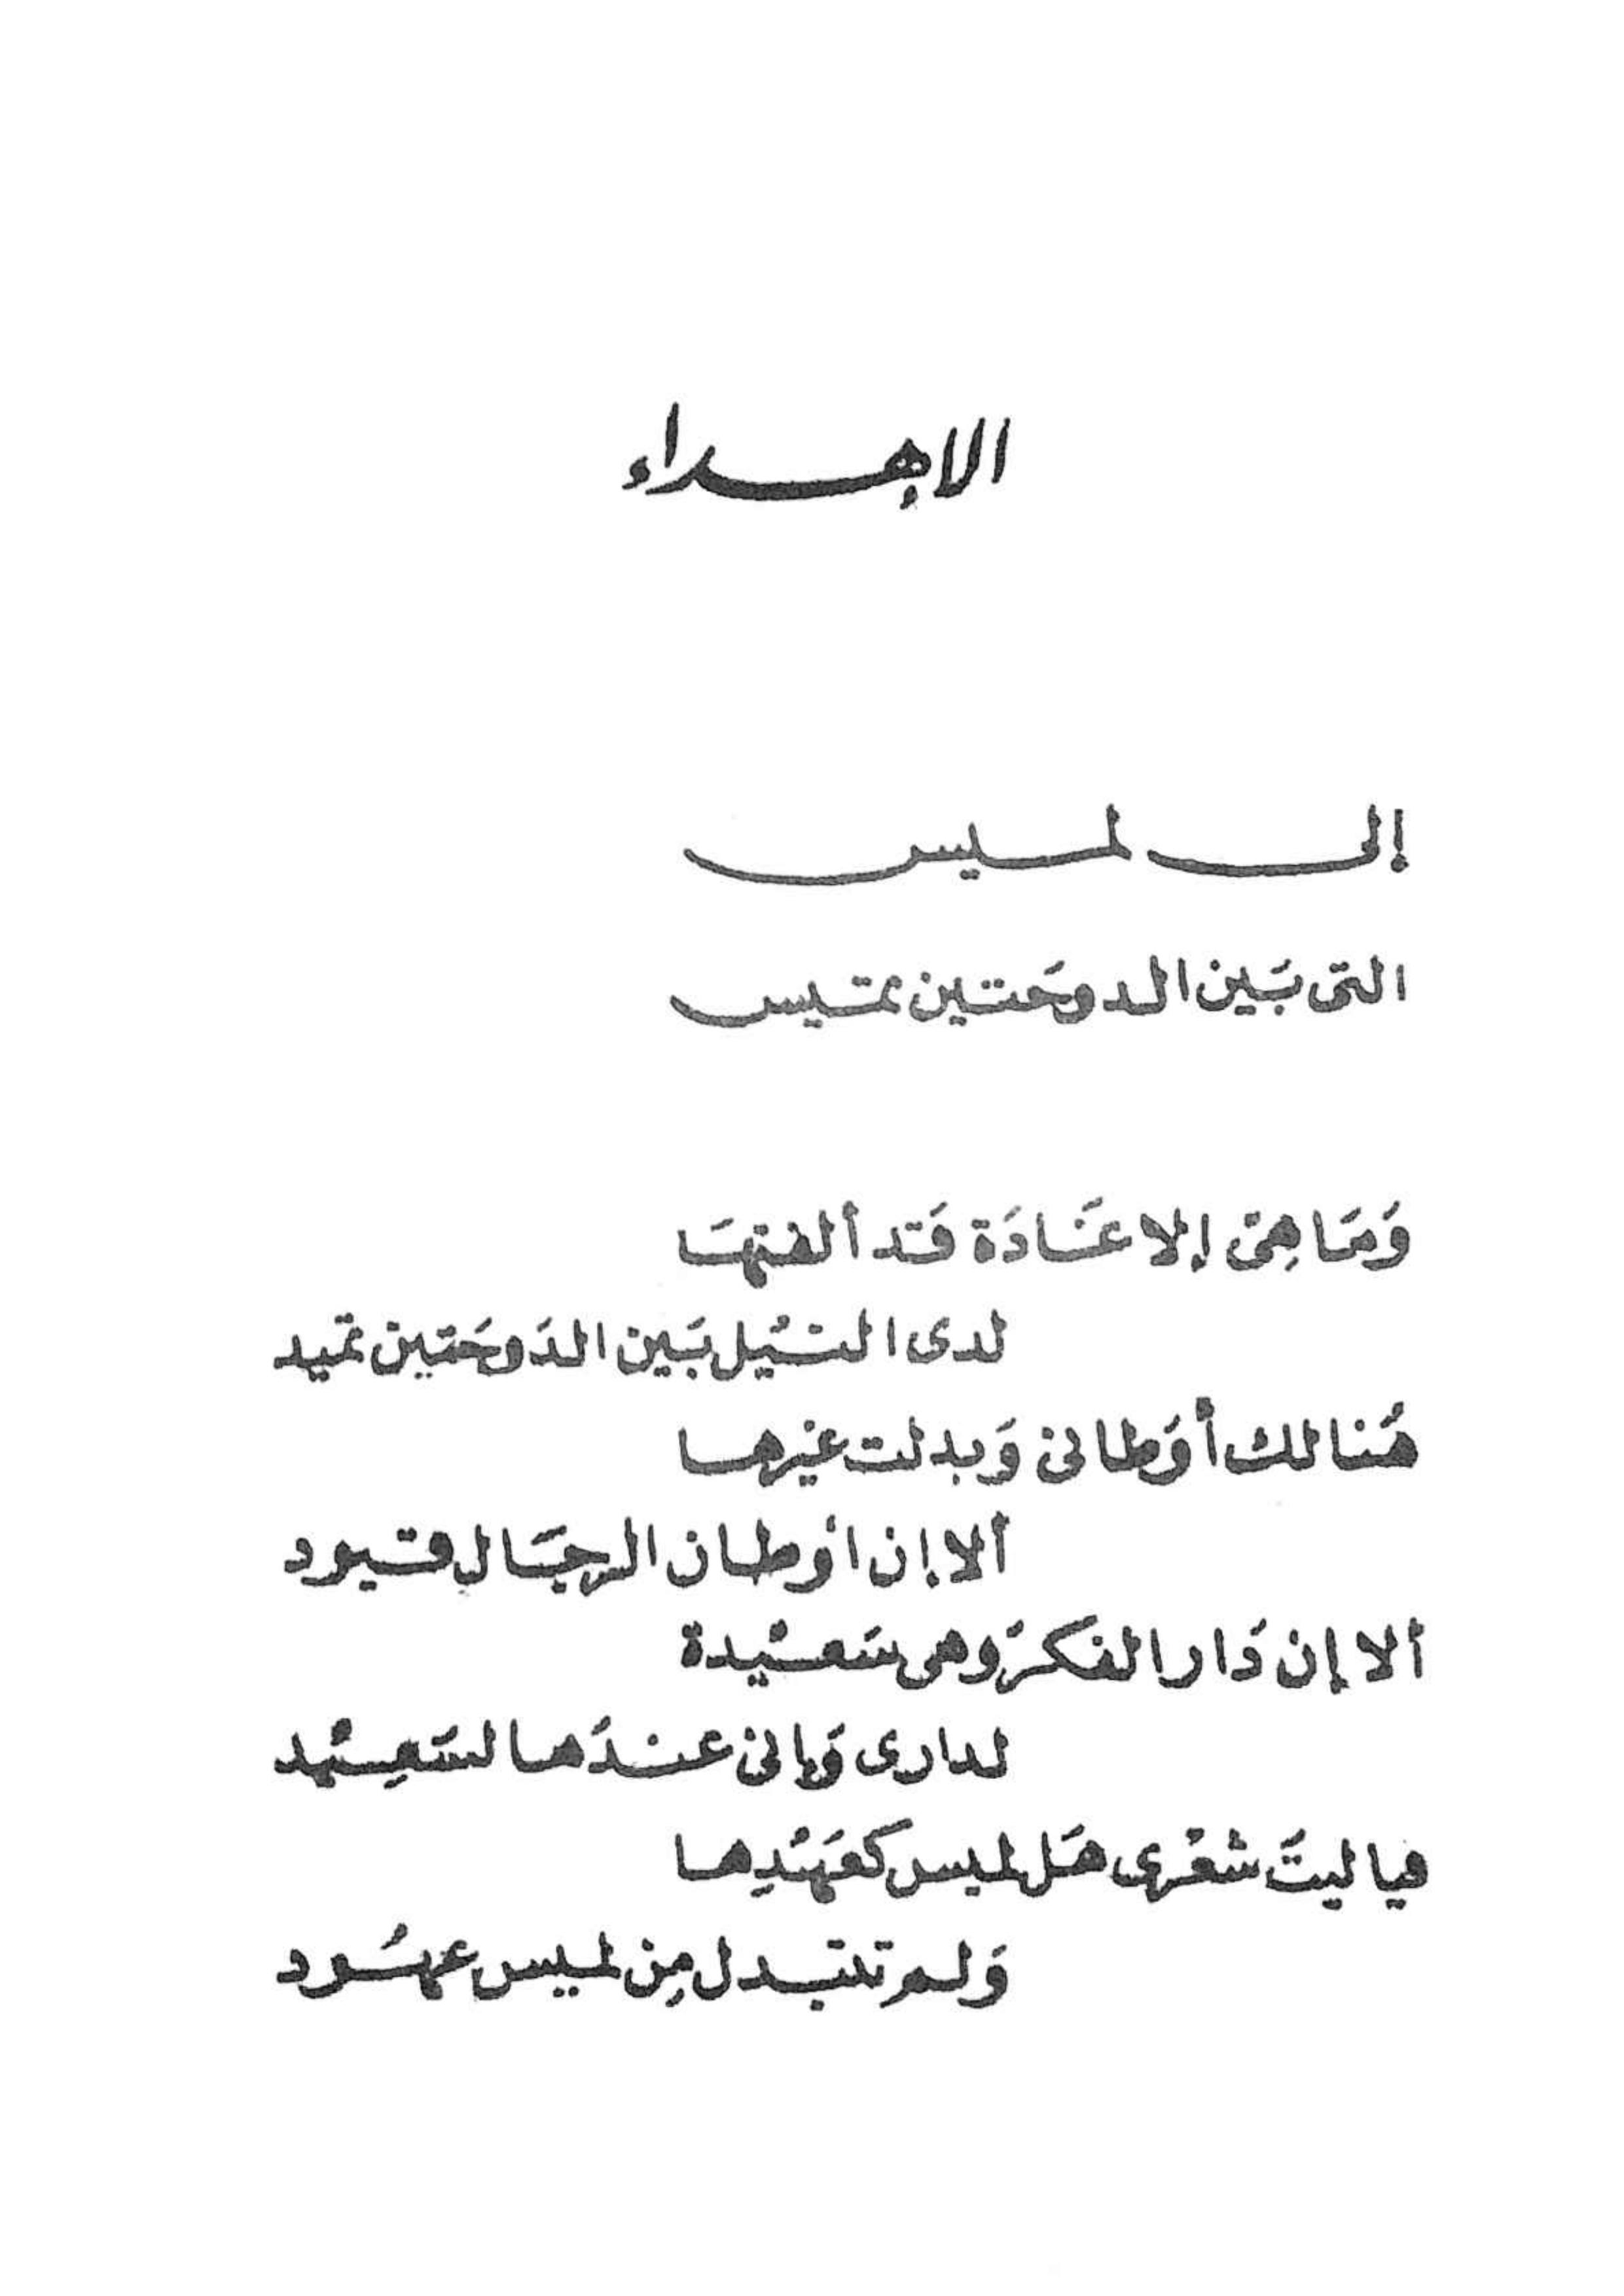 الإهداء
إلى لميس
التى بَين الدوحَتين تميس
وَمَا هِىَ إلا عَادَة قَد ألفتهَا
لدى النيْل بَين الدَوحَتين تميد
هُنالك أوَطانى وَبدلت غيرها
ألا إن أوطان الرجَال قيود
ألا إن دَار الفكرَ وهى سَعيْدة
لدارى وَإنى عندَها لسَعِيْد
فيا ليتَ شعْرى هَل لميس كعَهْدِها
وَلم تتبدل مِن لميس عهُود